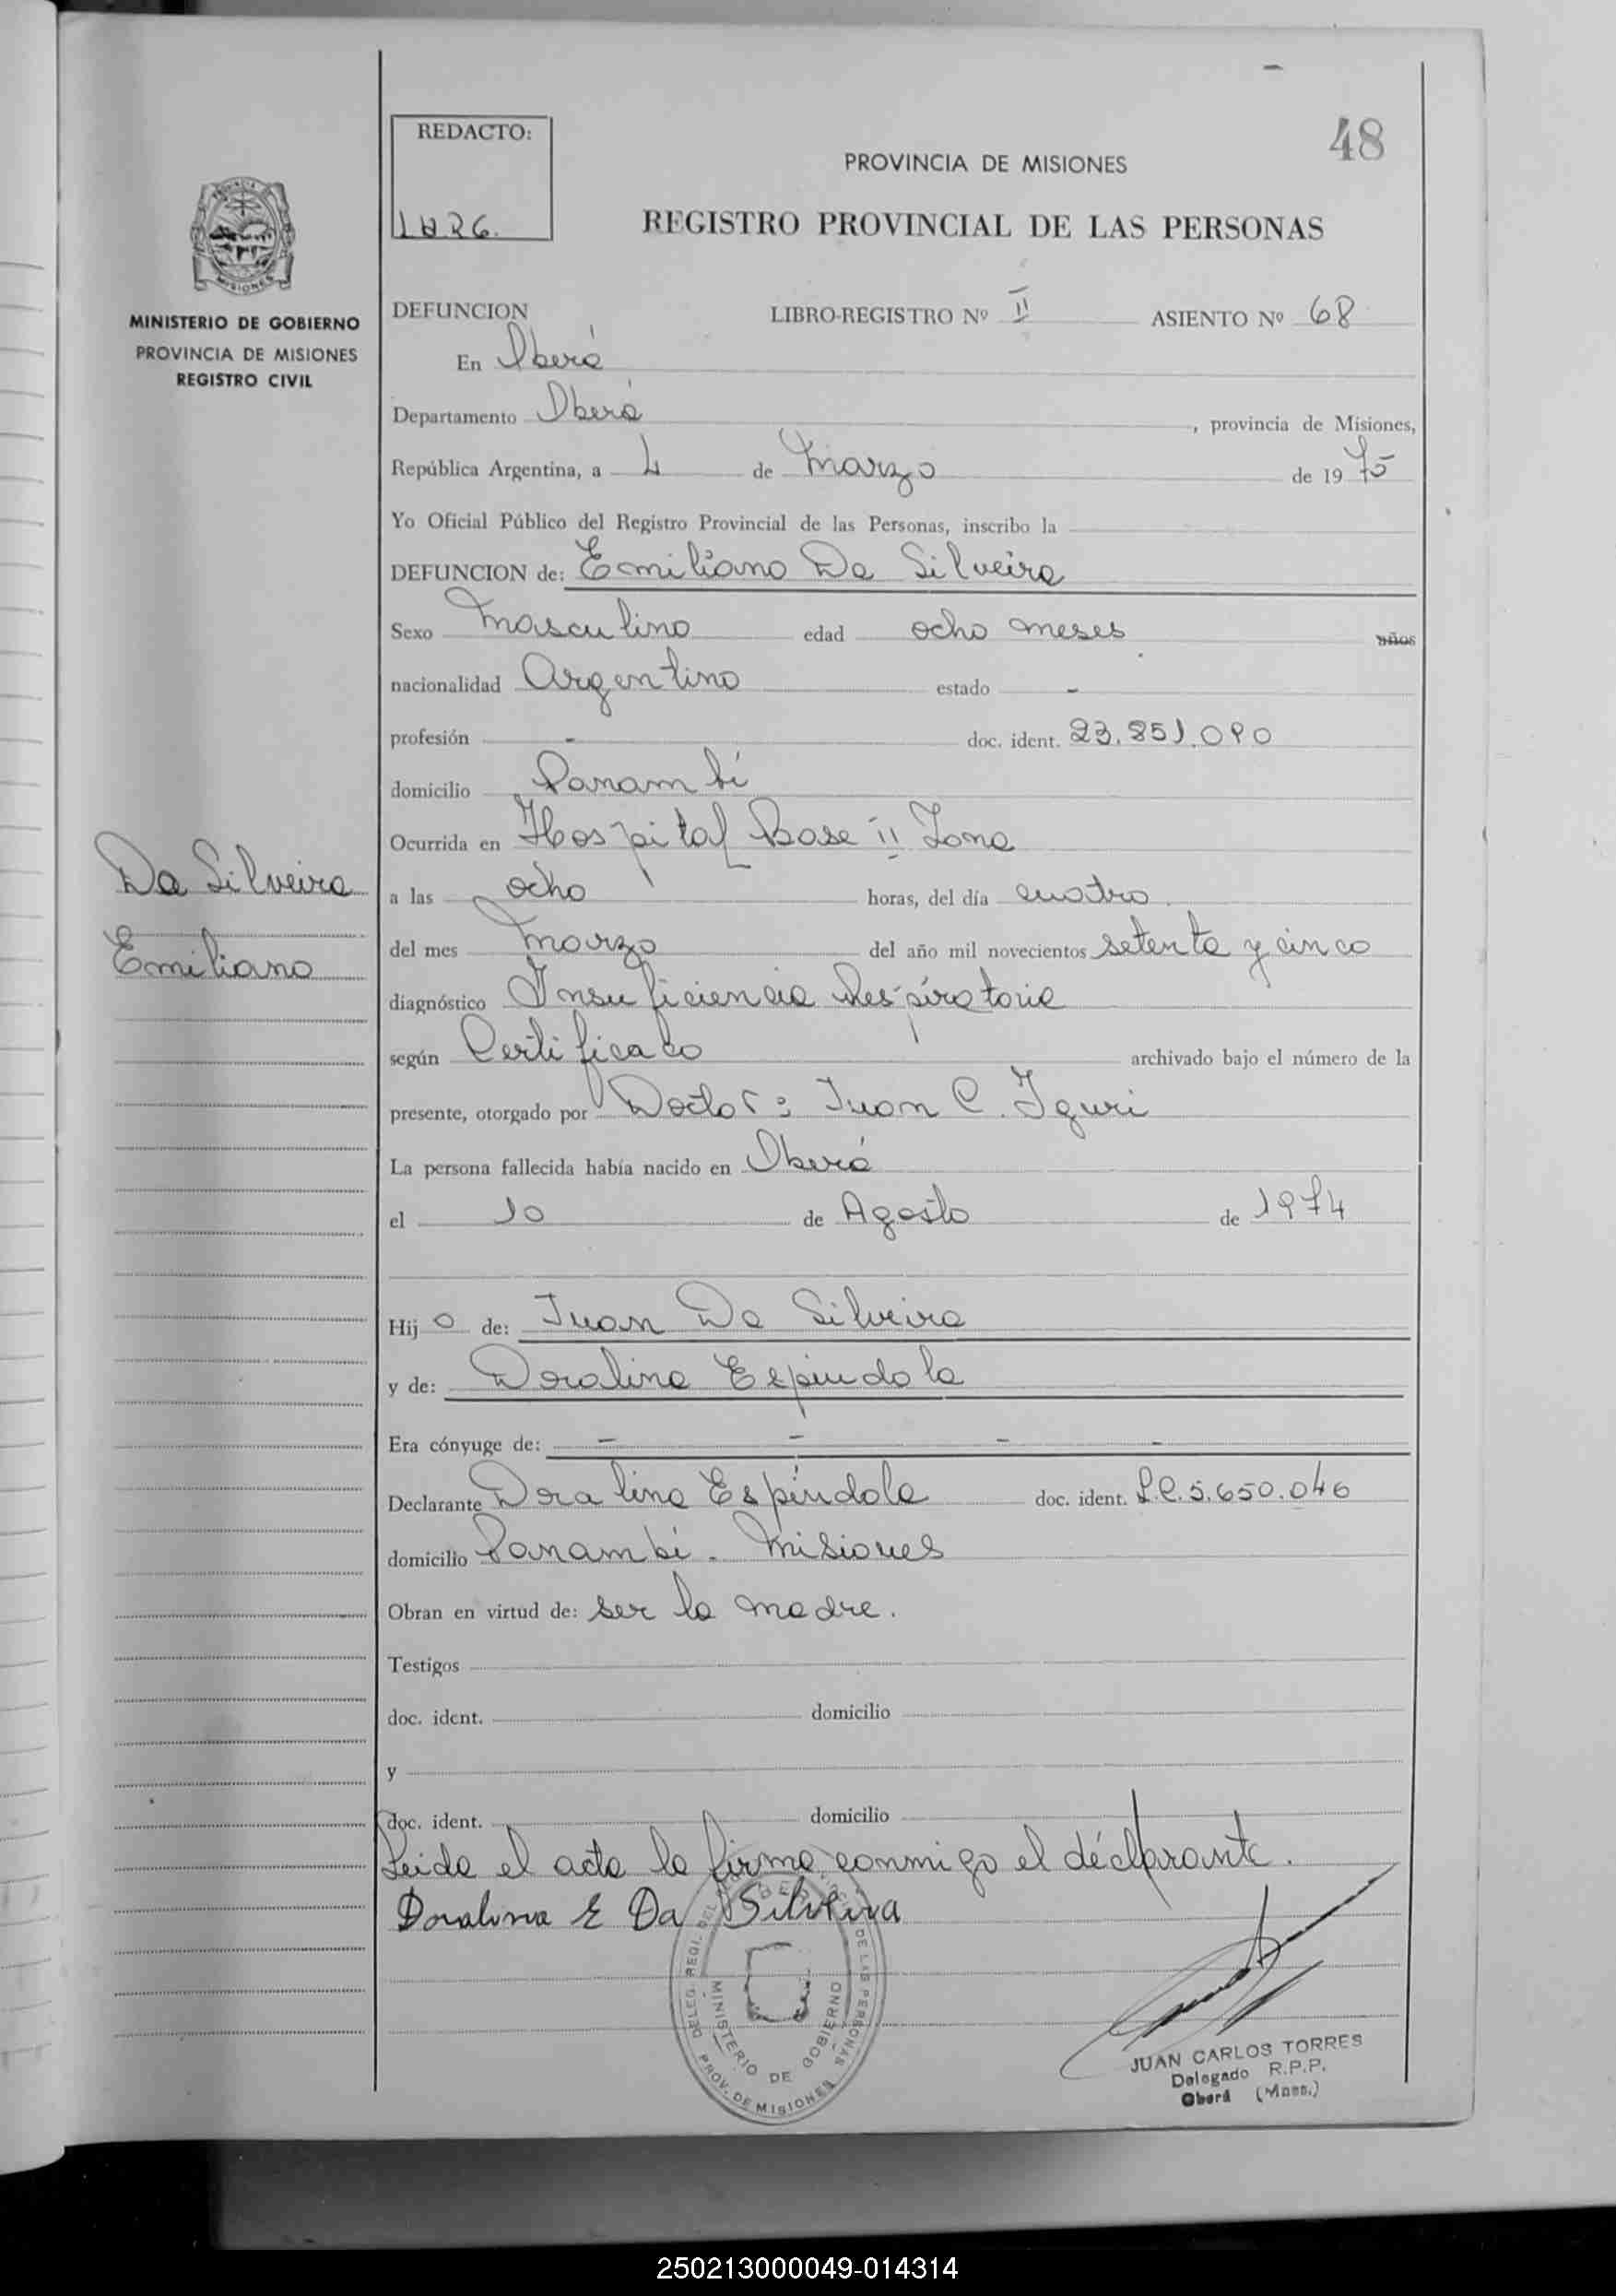 48
REDACTO:
PROVINCIA DE MISIONES
REGISTRO PROVINCIAL DE LAS PERSONAS
MINISTERIO DE GOBIERNO
PROVINCIA DE MISIONES
REGISTRO CIVIL
DEFUNCION LIBRO-REGISTRO Nº II ASIENTO Nº 68
En Oberá
Departamento Oberá, provincia de Misiones,
República Argentina, a 4 de Marzo de 1975
Yo Oficial Público del Registro Provincial de las Personas, inscribo la
DEFUNCION de: Emiliano Da Silveira
Sexo Masculino edad ocho meses años
nacionalidad Argentino estado -
profesión - doc. ident. 23.851.090
domicilio Panambí
Ocurrida en Hospital Base II Zona
Da Silveira
Emiliano
a las ocho horas, del día cuatro
del mes Marzo del año mil novecientos setenta y cinco
diagnóstico Insuficiencia Respiratoria
según Certificado archivado bajo el número de la
presente, otorgado por Doctor: Juan C. Iguri
La persona fallecida había nacido en Oberá
el 10 de Agosto de 1974
Hijo de: Juan Da Silveira
y de: Doralina Espindola
Era cónyuge de: - - - -
Declarante Dralina Espíndola doc. ident. L.C. 5.650.046
domicilio Panambí - Misiones
Obran en virtud de: ser la madre.
Testigos
doc. ident. domicilio
y
doc. ident. domicilio
Leida el acta la firma conmigo el declarante.
Doralina E Da Silveira
DELEG. REGI. DE LAS PERSONAS
MINISTERIO DE GOBIERNO
PROV. DE MISIONES
JUAN CARLOS TORRES
Delegado R.P.P.
Oberá (Mnes.)
250213000049-014314